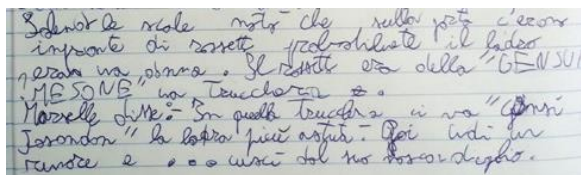 le scale notò che sulla porta c'erano
impronte di rossetto probabilmente il ladro
era una donna. Il rossetto era della "GENSUI
MESONE" una Truccbara.
Marselle disse: - In quella Truccbara ci va "
" la ladra più astuta. - Poi udì un
rumore e ... uscì dal suo nascondiglio.